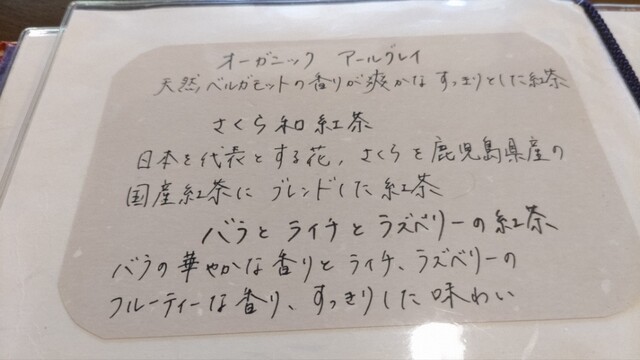 オーガニック アールグレイ
天然ベルガモットの香りが爽かな すっきりとした紅茶
さくら和紅茶
日本を代表とする花、さくらを鹿児島県産の
国産紅茶に ブレンドした紅茶
バラと ライチと ラズベリーの紅茶
バラの華やかな香りと ライチ、ラズベリーの
フルーティーな香り、すっきりした味わい